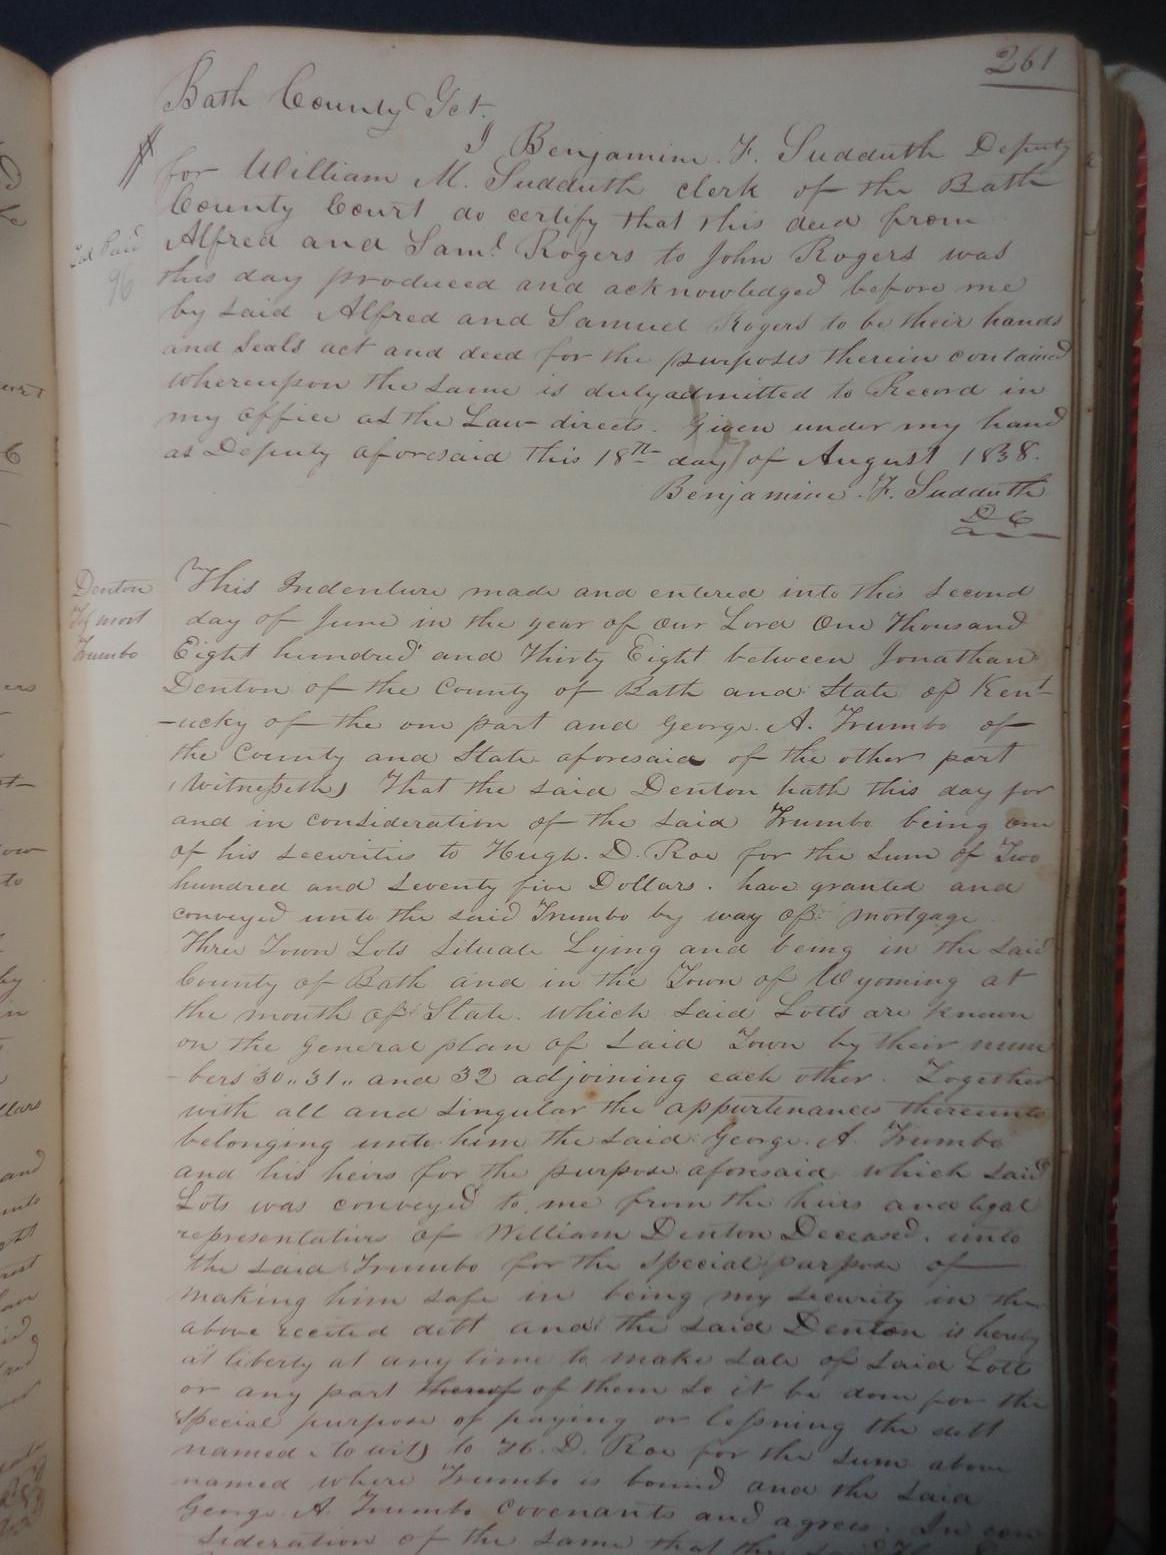 261
Bath County Sct.
I Benjamine. F. Sudduth Deputy
for William M. Sudduth clerk of the Bath
County Court do certify that this deed from
Alfred and Saml. Rogers to John Rogers was
this day produced and acknowledged before me
by said Alfred and Samuel Rogers to be their hands
and seals act and deed for the purposes therein contained
whereupon the same is duly admitted to Record in
my office as the Law directs. Given under my hand
as Deputy aforesaid this 18th day of August 1838.
Benjamine. F. Sudduth
D C
Denton
mort
Trumbo
This Indenture made and entered into this Second
day of June in the year of our Lord One Thousand
Eight hundred and Thirty Eight between Jonathan
Denton of the County of Bath and State of Kent
-ucky of the one part and George. A. Trumbo of
the County and State aforesaid of the other part
(Witnesseth) That the said Denton hath this day for
and in consideration of the said Trumbo being one
of his securities to Hugh. D. Roe for the sum of Two
hundred and seventy five Dollars. have granted and
conveyed unto the said Trumbo by way of mortgage
Three Town Lots Situate Lying and being in the said
County of Bath and in the Town of Wyoming at
the mouth of State. which said Lotts are known
on the general plan of said Town by their num
-bers 30,, 31,, and 32 adjoining each other. Together
with all and singular the appurtenances thereunto
belonging unto him the said George. A. Trumbo
and his heirs for the purpose aforesaid which said
Lots was conveyed to me from the heirs and legal
representatives of William Denton Deceased. unto
the said Trumbo for the special purpose of
making him safe in being my security in the
above recited debt and the said Denton is hereby
at liberty at any time to make sale of said Lotts
or any part thereof of them so it be done for the
special purpose of paying or lessning the debt
named (to wit) to H. D. Roe for the sum above
named where Trumbo is bound and the said
George. A. Trumbo covenants and agrees. In con
sideration of the same that the said